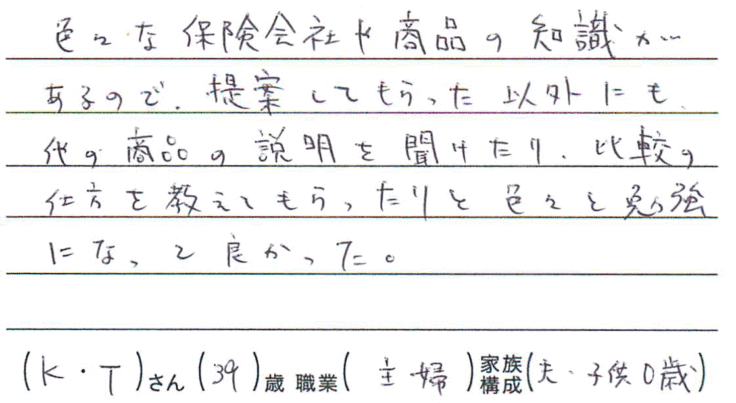 色々な保険会社や商品の知識が
あるので、提案してもらった以外にも、
他の商品の説明を聞けたり、比較の
仕方を教えてもらったりと色々と勉強
になって良かった。
(K・T)さん(39)歳 職業(主婦)家族構成(夫・子供0歳)